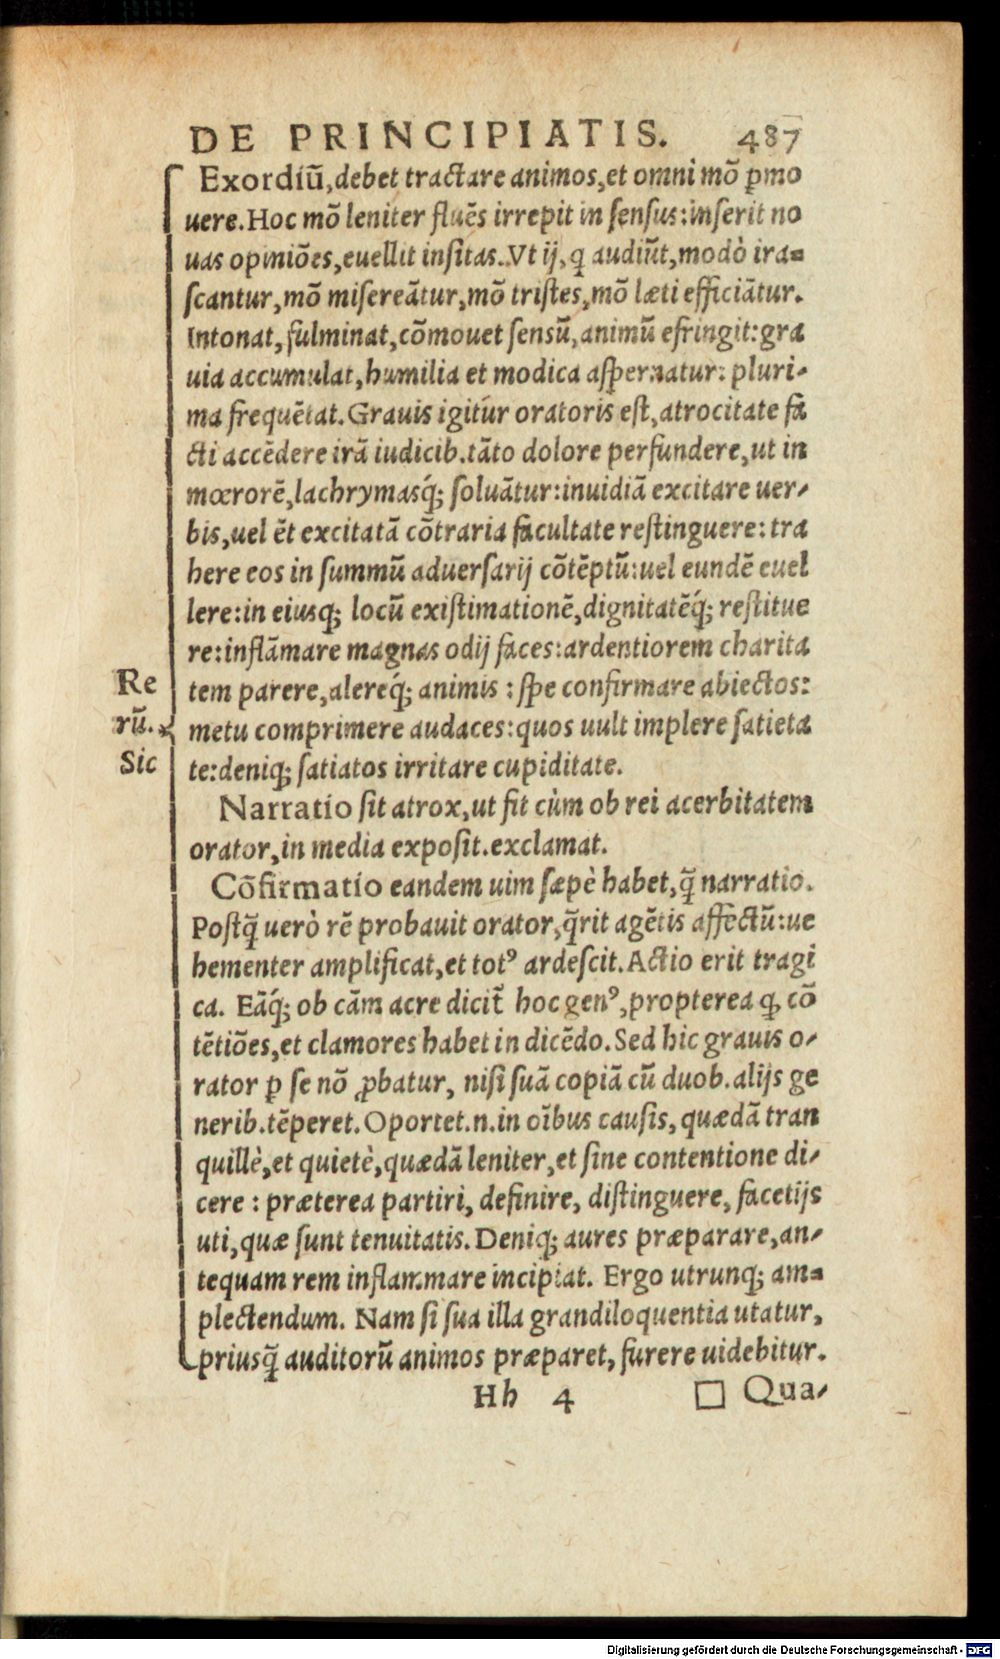 DE PRINCIPIATIS. 487
Exordiū, debet tractare animos, et omni mō ꝑmo
uere. Hoc mō leniter fluēs irrepit in sensus: inserit no
uas opiniōes, euellit insitas. Vt ij, q̨ audiūt, modò ira-
scantur, mō misereātur, mō tristes, mō læti efficiātur.
Intonat, fulminat, cōmouet sensū, animū efringit: gra
uia accumulat, humilia et modica aspernatur: pluri-
ma frequētat. Grauis igitur oratoris est, atrocitate fa
cti accēdere irā iudicib. tāto dolore perfundere, ut in
mœrorē, lachrymasq́; soluātur: inuidiā excitare uer-
bis, uel ēt excitatā cōtraria facultate restinguere: tra
here eos in summū aduersarij cōtēptū: uel eundē euel
lere: in eiusq; locū existimationē, dignitatēq́; restitue
re: inflāmare magnas odij faces: ardentiorem charita
tem parere, alereq́; animis : spe confirmare abiectos:
metu comprimere audaces: quos uult implere satieta
te: deniq; satiatos irritare cupiditate.
Re
rū.
Sic
Narratio sit atrox, ut fit cùm ob rei acerbitatem
orator, in media exposit. exclamat.
Cōfirmatio eandem uim sæpè habet, q̄ narratio.
Postq̄ uerò rē probauit orator, q̄rit agētis affectū: ue
hementer amplificat, et totꝰ ardescit. Actio erit tragi
ca. Eāq́; ob cām acre dicit̄ hoc genꝰ, propterea q̨ cō
tētiōes, et clamores habet in dicēdo. Sed hic grauis o-
rator ꝑ se nō ꝓbatur, nisi suā copiā cū duob. alijs ge
nerib. tēperet. Oportet .n. in oībus causis, quædā tran
quillè, et quietè, quædā leniter, et sine contentione di-
cere : præterea partiri, definire, distinguere, facetijs
uti, quæ sunt tenuitatis. Deniq; aures præparare, an-
tequam rem inflammare incipiat. Ergo utrunq; am-
plectendum. Nam si sua illa grandiloquentia utatur,
priusq̄ auditorū animos præparet, furere uidebitur.
Hh 4 □ Qua-
Digitalisierung gefördert durch die Deutsche Forschungsgemeinschaft - DFG